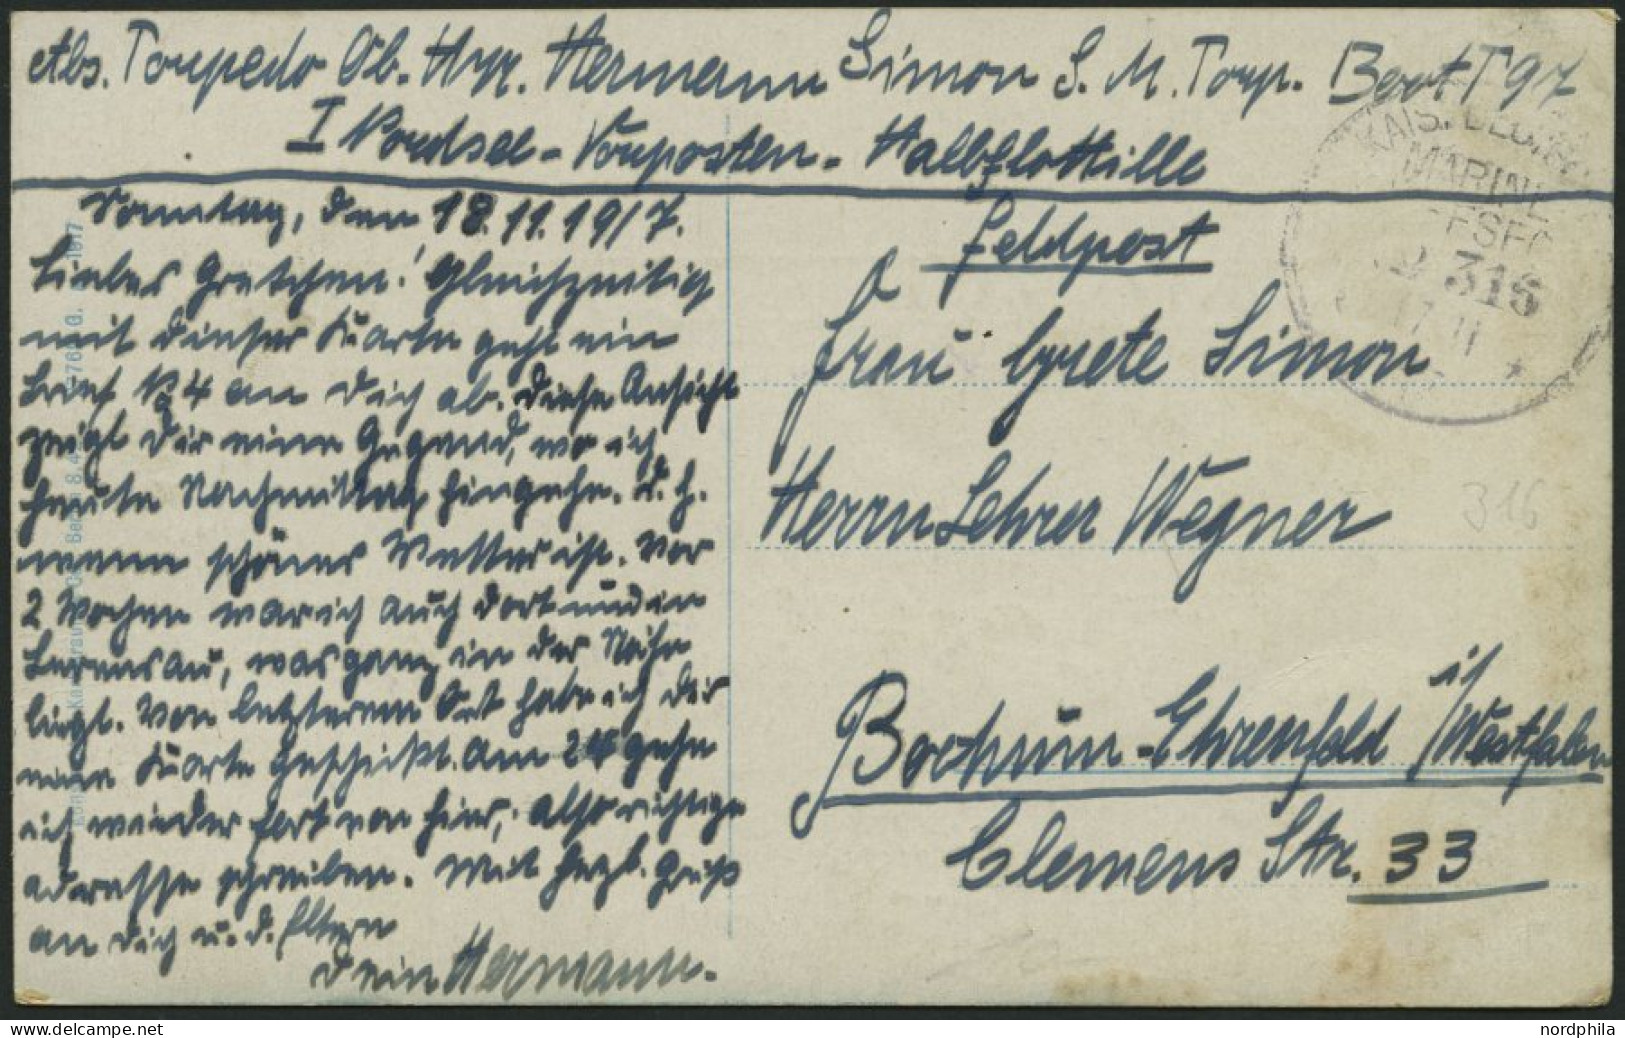 Abs. Torpedo Ob. Hzr. Hermann Simon S. M. Torp. Boot T 97
I Nordsee-Vorposten-Halbflottille
Sonntag, den 18.11.1917.
Liebes Gretchen! Gleichzeitig
mit dieser Karte geht ein
Brief N 4 an Dich ab. Diese Ansicht
zeigt Dir eine Gegend, wo ich
heute Nachmittag hingehe. d. h.
wenn schönes Wetter ist. Vor
2 Wochen war ich auch dort und in
was ganz in der Nähe
liegt. Von letzterem Ort habe ich Dir
eine Karte geschickt. Am 24 gehe
ich wieder fort von hier, also richtige
Adresse schreiben. Mit herzl. Gruß
an Dich u. d. Eltern
Dein Hermann.
Feldpost
Frau Grete Simon
Herrn Lehrer Wegner
Bochum-Ehrenfeld i/Westfalen
Clemens Str. 33
KAIS. DEUTSCHE
MARINE
316
17 11
316
1917
nordphila